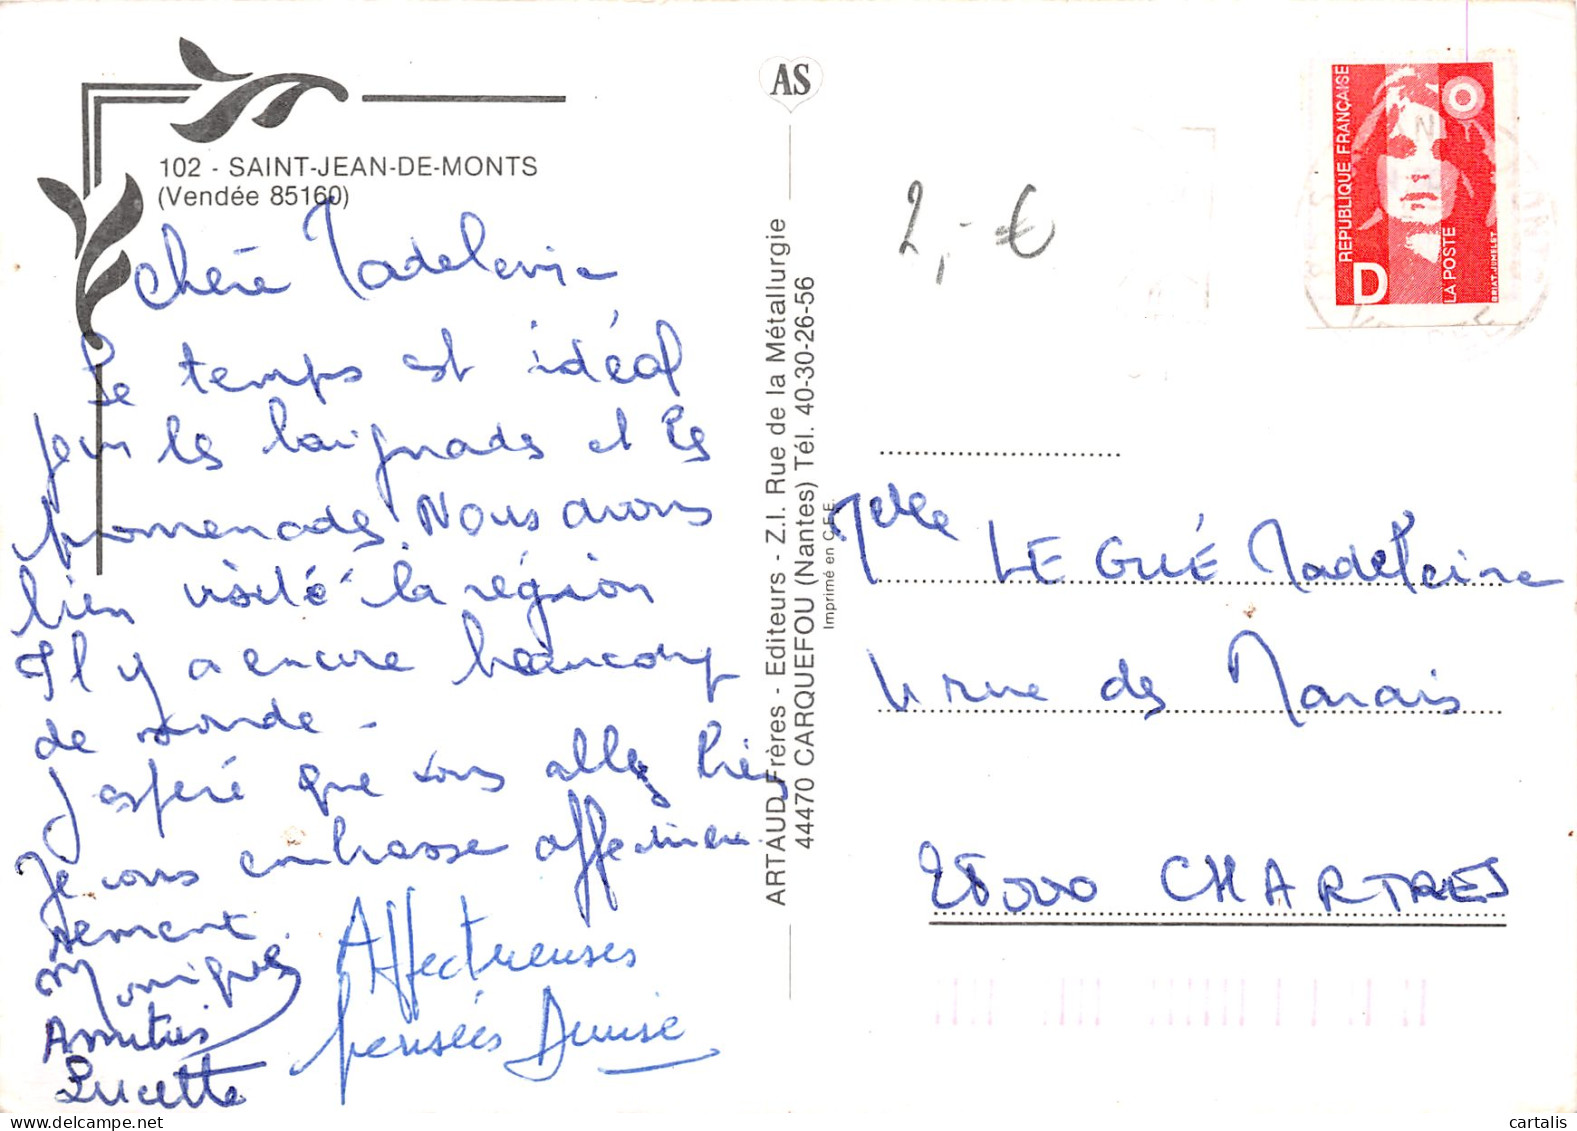 102 - SAINT-JEAN-DE-MONTS
(Vendée 85160)
Chère Madeleine
Le temps est idéal
pour les baignades et les
promenades. Nous avons
bien visité la région
Il y a encore beaucoup
de monde -
J'espère que vous allez bien
Je vous embrasse affectueu
sement.
Monique
Amitiés
Lucette
Affectueuses
pensées Denise
AS
ARTAUD Frères - Editeurs - Z.I. Rue de la Métallurgie
44470 CARQUEFOU (Nantes) Tél. 40-30-26-56
Imprimé en C.E.E.
2,- €
REPUBLIQUE FRANÇAISE
D
LA POSTE
BRIAT-JUMELET
Melle LE GUÉ Madeleine
rue des Marais
28000 CHARTRES
cartalis